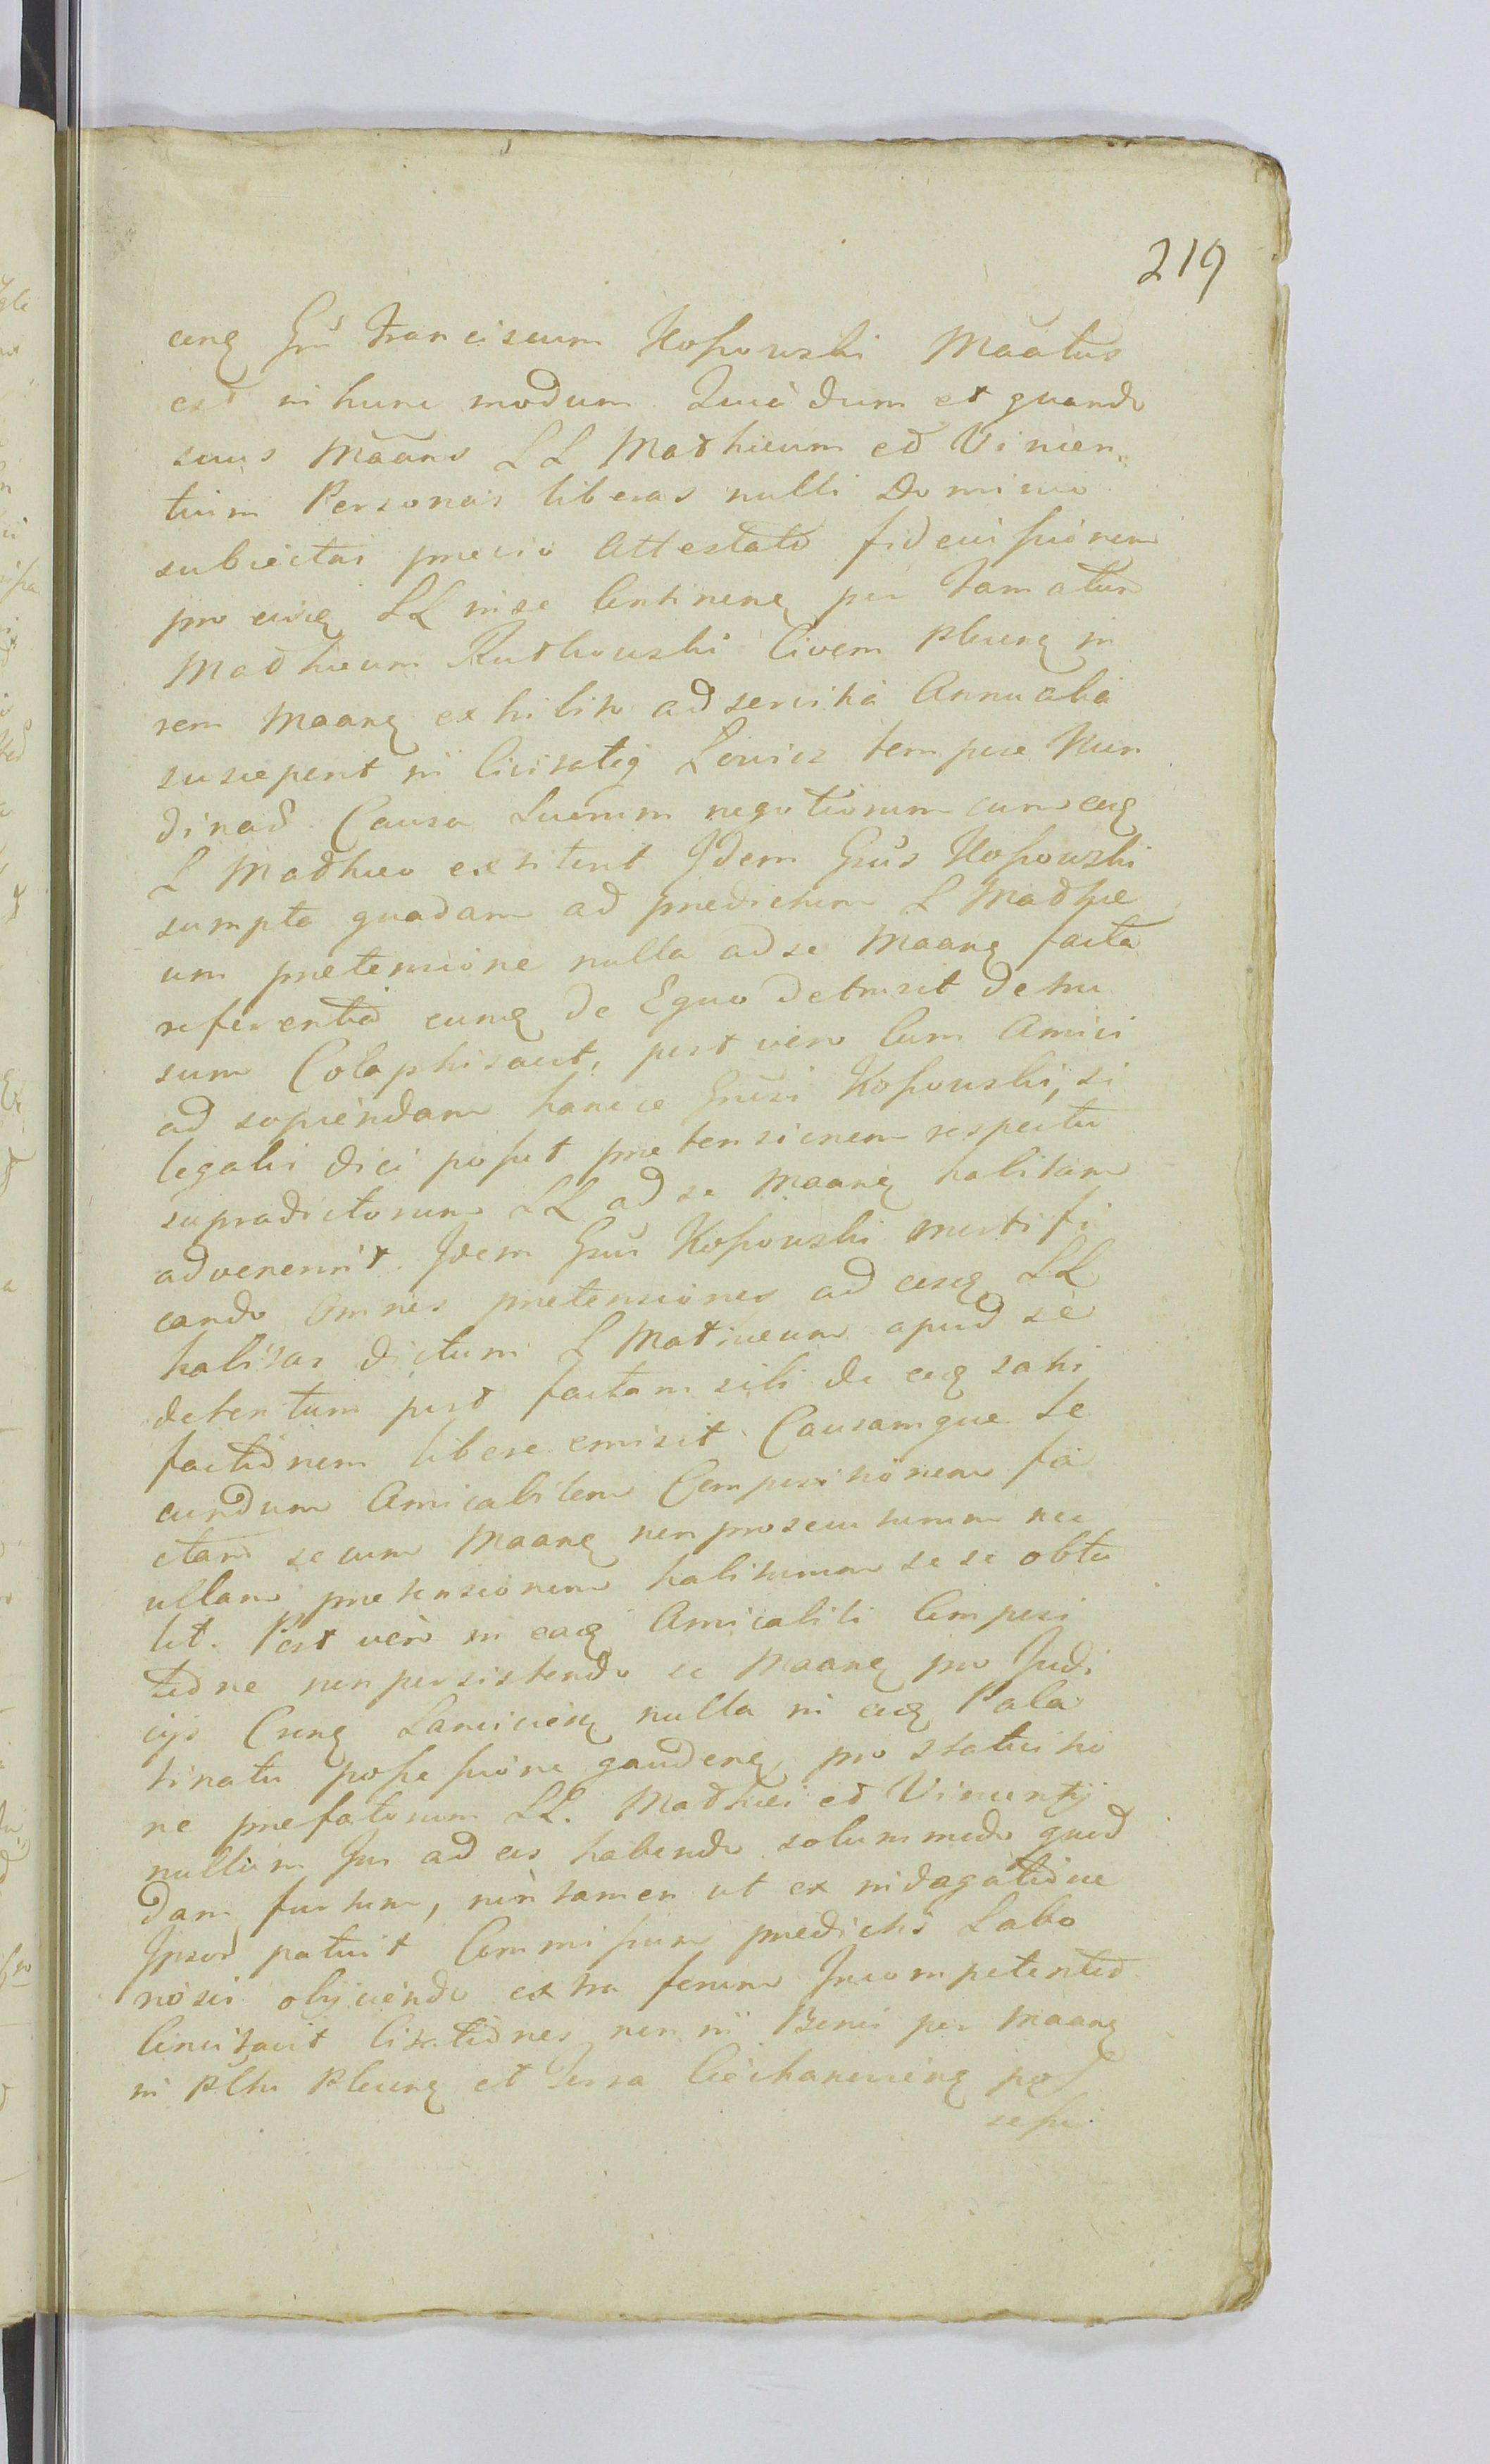 219
eunq Grn̄s Franciscum Kossowski Maãtus
est in hunc modum Quià dum et quando
suus Maãns LL Mathieum et Vincen
tium Personas liberas nulli Dominio
subiectas previo Attestato fideiussionem
pro eisq LL in se Continenq per Famatum
Mathieum Rutkowski Civem Plocenq in
rem Maanq exhibito ad servitia Annualia
suscepent in Civitateq Lovicz tempore Nun
dinar̄ Causa Suorum negotiorum cum eoq
L Mathieo extiterit Idem Grūs Kossowski
sumpta quadam ad predictum L Mathie
um pretensione nulla ad se Maanq facta
referentia eumq de Equo detrusit dehu
sum Colaphisavit, post vero Cum Amici
ad sopiendam hancce Grūsi Kossowski, si
legalis dici posset pretensionem respectu
supradictorum LL ad se Maanq habitam
advenerint. Idem Grūs Kossowski mortifi
cando Omnes pretensiones ad eosq LL
habitas dictum L Mathieum apud se
detentum post factam sibi de eoq satis
factionem libere emisit Causamque Se
cundum Amicabilem Compositionem fa
ctam secum Maanq non prosecuturum nec
ullam pretensionem habiturum se se obtu
lit. Post vero in eaq Amicabili Composi
tione non persistendo se Maanq pro Judi
cys Crnq Lanciciesq nulla in eoq Pala
tinatu possessione gaudenq, pro statuitio
ne prefatorum LL. Mathiei et Vincentÿ
nullum Jus ad eos habendo solummodo quod
dam furtum, non tamen ut ex indagatione
Ipsor̄ patuit Commissum predictis Labo
riosis obÿciendo extra forum Incompetenter
Concitavit Citationes non in Bonis per Maanq
in Plttu Plocenq et Terra Ciechanoviensq pos
sessi